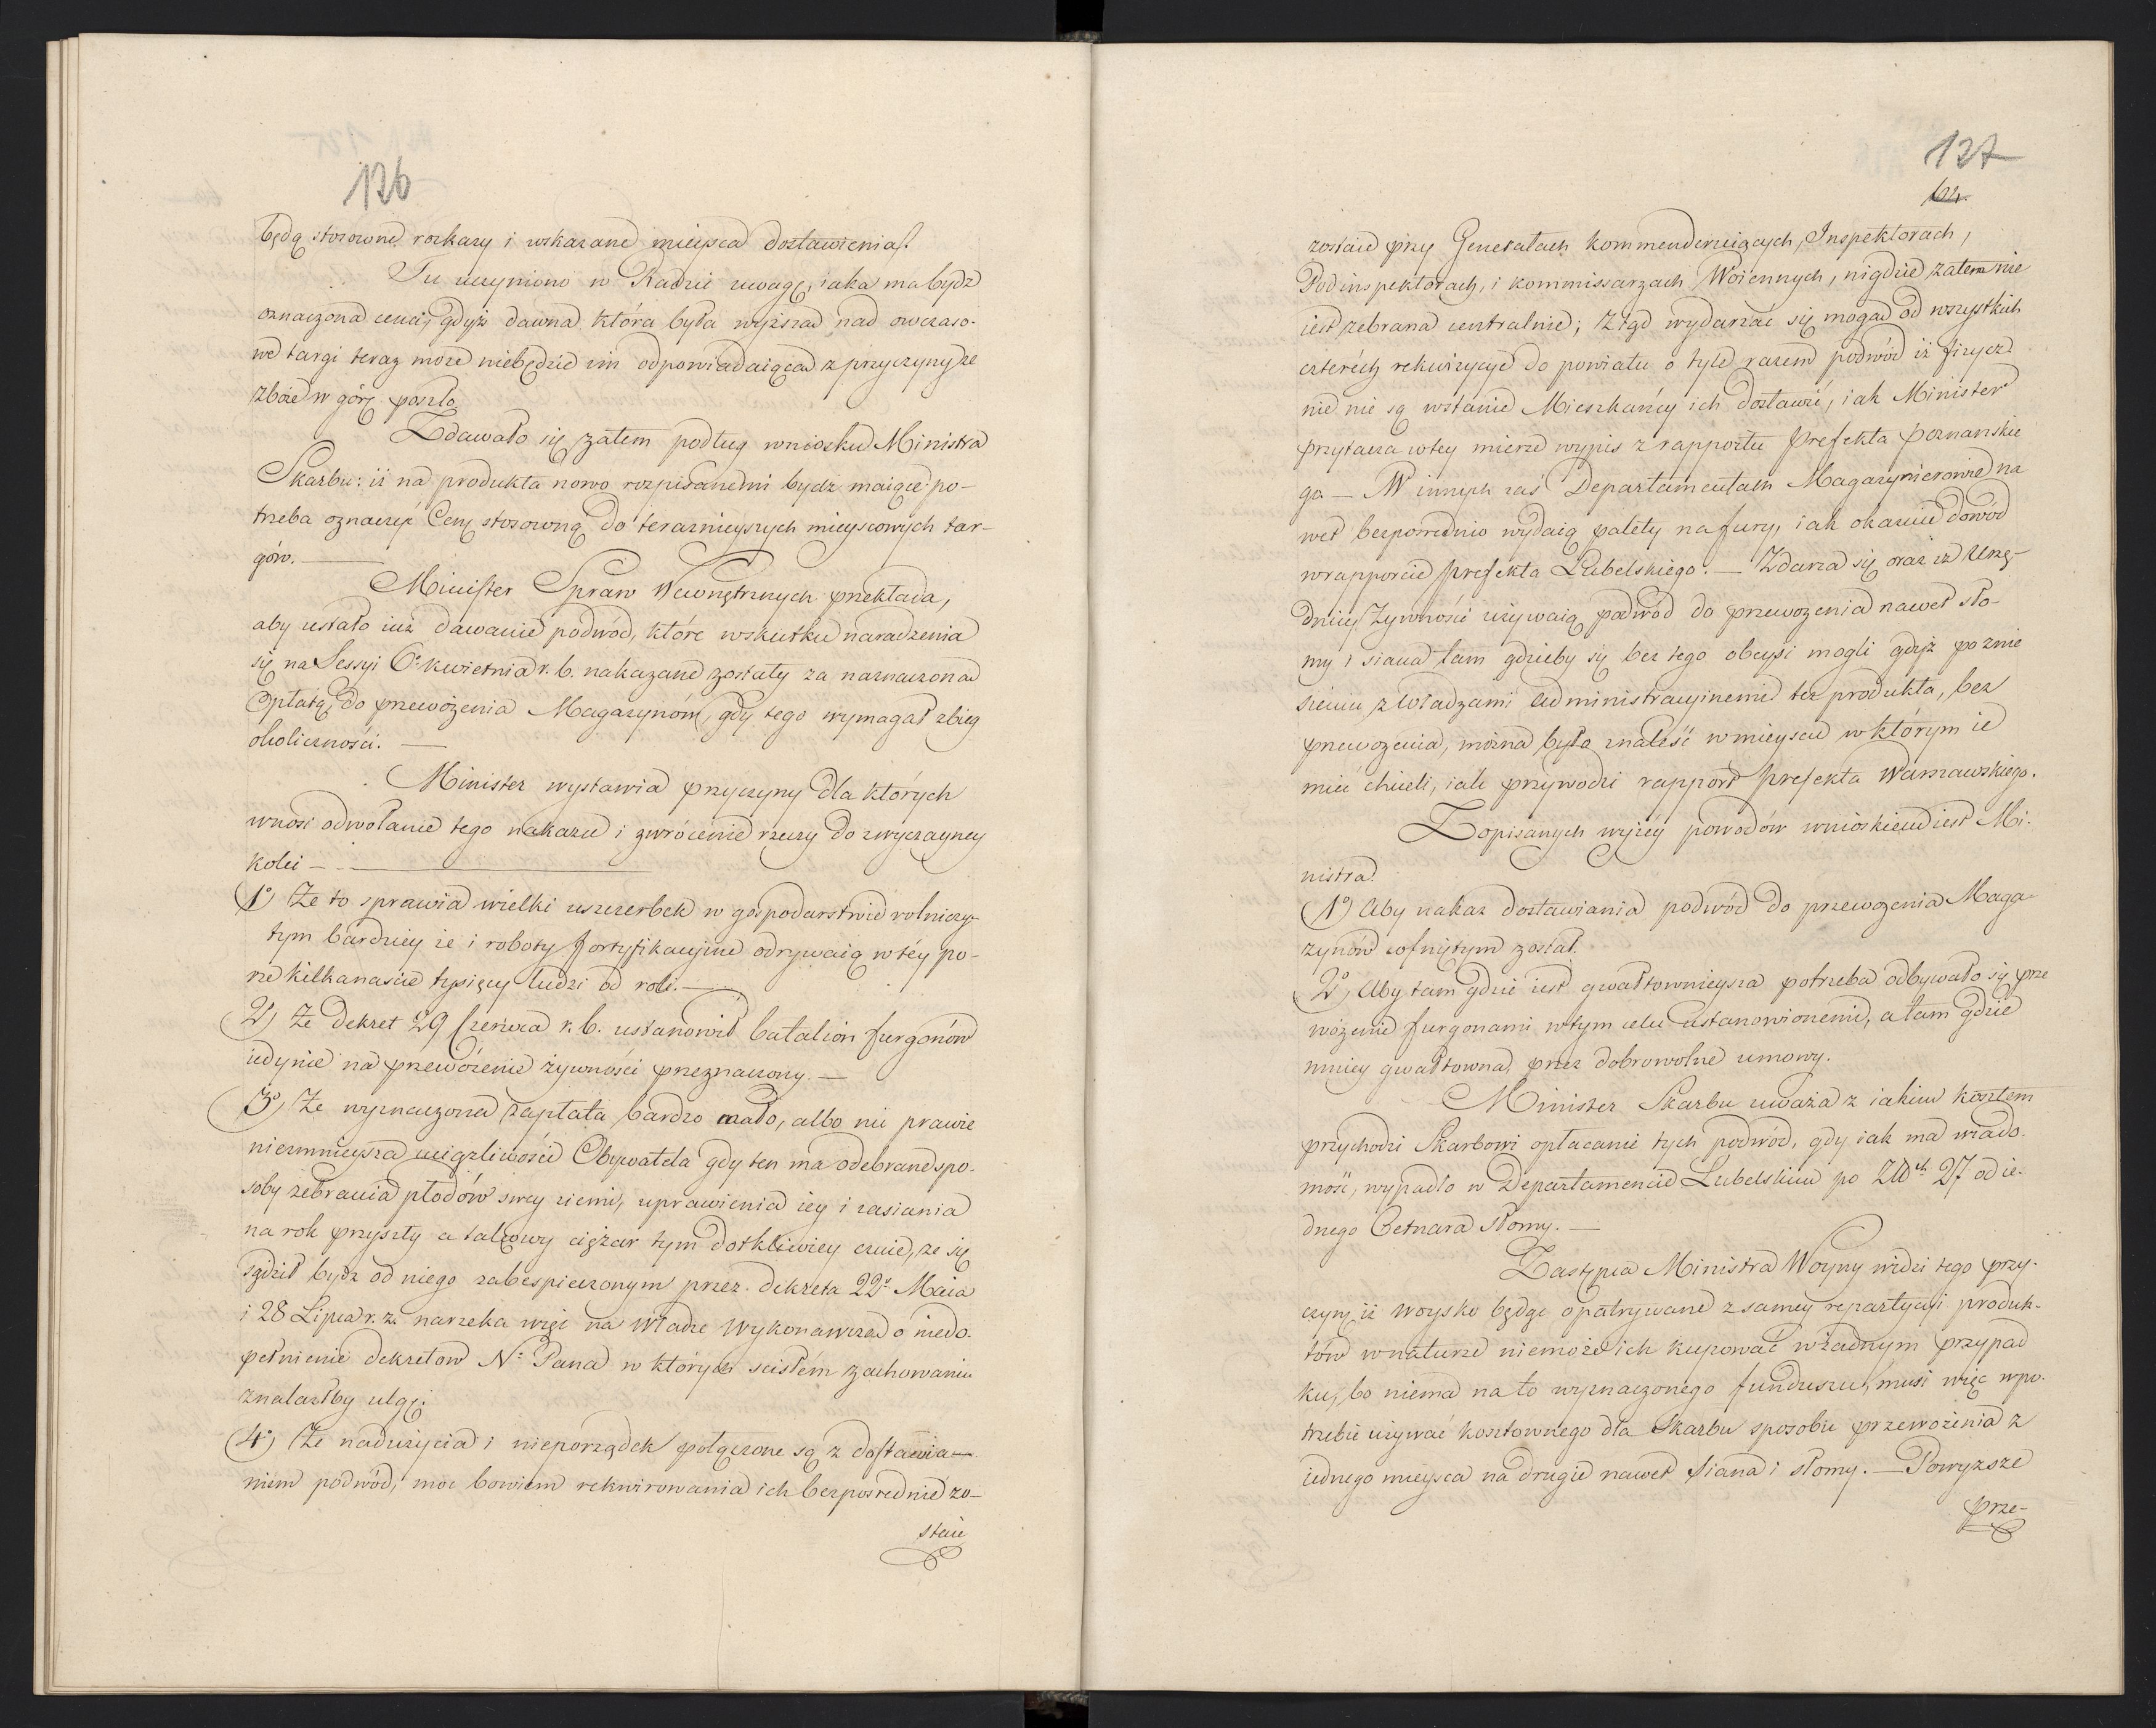 126
będą stosowne rozkazy i wskazane mieysca dostawienia.
Tu uczyniono w Radzie uwagę, iaka ma bydź
oznaczona cena, gdyż dawna która była wyższa nad owczaso-
we targi teraz może niebędzie im odpowiadaiąca z przyczyny że
zboże w górę poszło
Zdawało się zatem podług wniosku Ministra
Skarbu: iż na produkta nowo rozpisanemi bydź maiące po-
trzeba oznaczyć Cenę stosowną do teraznieyszych mieyscowych tar-
gów. —
Minister Spraw Wewnętrznych przekłada,
aby ustało iuż dawanie podwód, które wskutku naradzenia
się na Sessyi 6° kwietnia r. b. nakazane zostały za naznaczona
Opłatą, do przewożenia Magazynów, gdy tego wymagał zbieg
okoliczności. —
Minister wystawia przyczyny dla których
wnosi odwołanie tego nakazu i zwrócenie rzeczy do zwyczayney
kolei —
1° Że to sprawia wielki uszczerbek w gospodarstwie rolniczy-
tym bardziey że i roboty fortyfikacyine odrywaią w téy po-
rze kilkanaście tysięcy ludzi od roli. —
2, Że dekret 29 Czerwca r. b. ustanowił batalion furgonów
iedynie na przewożenie żywności przeznaczony. —
3° Że wyznaczona zapłata bardzo mało, albo nic prawie
niezmnieysza uciążliwości Obywatela gdy ten ma odebrane spo-
soby zebrania płodów swey ziemi, uprawienia iey i zasiania
na rok przyszły a takowy ciężar tym dotkliwiey czuie, że się
sądził bydź od niego zabespieczonym przez dekreta 22° Maia
i 28 Lipca r. z. narzeka więc na Władze Wykonawcza o niedo-
pełnienie dekretow N° Pana w których scisłém zachowaniu
znalazłby ulgę.
4° Że nadużycia i nieporządek połączone są z dostawia—
niem podwód, moc bowiem rekwirowania ich bezpośrednie zo—
staie
127
zostaie przy Generałach kommenderuiących, Inspektorach,
Podinspektorach, i kommissarzach Woiennych, nigdzie zatem nie
iest zebrana centralnie; Ztąd wydarzać się mogą od wszystkich
czterech rekwizycye do powiatu o tyle razem podwód iż fizycz-
nie nie są wstanie Mieszkańcy ich dostawić, iak Minister
przytacza wtey mierze wypis z rapportu Prefekta Poznanskie
go — W innych zaś Departamentach Magazynierowie na
wet bezpośrednio wydaią palety na fury, iak okazuie dowód
wrapporcie Prefekta Lubelskiego. — Zdarza się oraz iż Urzę-
dnicy Żywności używaią podwód do przewożenia nawet sło-
my i siana tam gdzieby się bez tego obeysć mogli gdyż po znie
sieniu z Władzami administracyinemi też produkta, bez
przewożenia, można było znaleść wmieyscu w którym ie
mieć chcieli, iak przywodzi rapport Prefekta Warszawskiego.
Z opisanych wyżéy powodów wnioskiem iest Mi-
nistra.
1° Aby nakaz dostawiania podwód do przewożenia Maga
zynów cofniętym został.
2° Aby tam gdzie iest gwałtownieysza potrzeba odbywało się prze
wożenie furgonami wtym celu ustanowionemi, a tam gdzie
mniey gwałtowna, przez dobrowolne umowy.
Minister Skarbu uważa z iakim kosztem
przychodzi Skarbowi opłacanie tych podwód, gdy iak ma wiado-
mość, wypadło w Departamencie Lubelskim po Zł 27 od ie-
dnego Cetnara słomy. —
Zastępca Ministra Woyny widzi tego przy-
czynę iż woysko będąc opatrywane z samey repartycyi produk-
tów wnaturze niemoże ich kupować w żadnym przypad
ku, bo niema na to wyznaczonego funduszu, musi więc wpo-
trzebie używać kosztownego dla Skarbu sposobu przewożenia z
iednego mieysca na drugie nawet siana i słomy. — Powyższe
prze-